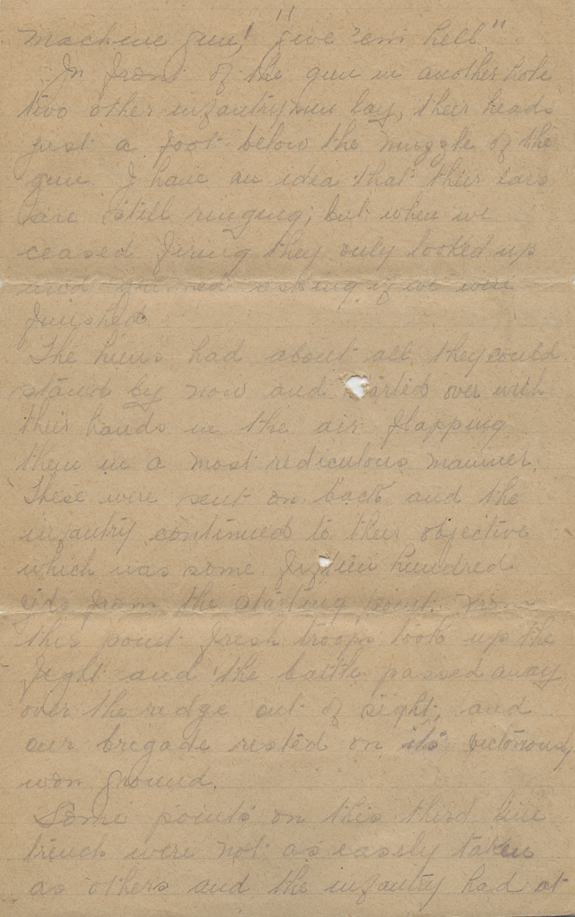 machine gun! "give 'em hell"
In front of the gun in another hole
two other infantrymen lay, their heads
just a foot below the muzzle of the
gun. I have an idea that their ears
are still ringing; but when we
ceased firing they only looked up
and grinned asking if we were
finished
The huns had about all they could
stand by now and started over with
their hands in the air flapping
them in a most rediculous manner.
These were sent on back and the
infantry continued to their objective
which was some fifteen hundred
yds from the starting point. From
this point fresh troops took up the
fight and the battle passed away
over the ridge out of sight, and
our brigade rested on its victoriously
won ground.
Some points on this third line
trench were not as easily taken
as others and the infantry had at